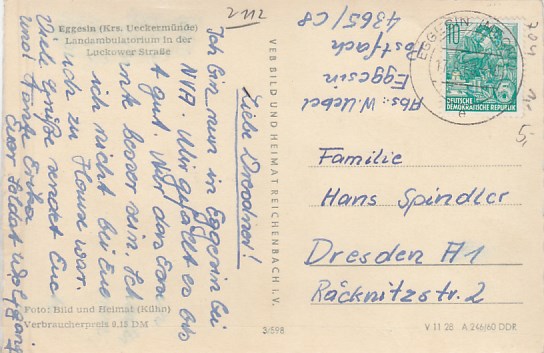 2112
Eggesin (Krs. Ueckermünde)
Landambulatorium in der
Luckower Straße
Liebe Dresdner!
Ich bin nun in Eggesin bei
NVA. Mir gefällt es bis
gut. War das
besser sein. Ich
ich nicht bei Euch
zu Hause war.
Viele Grüße sendet Euch
und Tante Erika
Euer Soldat Wolfgang
Foto: Bild und Heimat (Kühn)
Verbraucherpreis 0.15 DM
VEB BILD UND HEIMAT REICHENBACH I. V.
3/598
Abs: W. Uebel
Eggesin
Postfach
4365/C8
EGGESIN
10
DEUTSCHE
DEMOKRATISCHE REPUBLIK
e
5,-
Familie
Hans Spindler
Dresden A1
Räcknitzstr. 2
V 11 28 A 246/60 DDR